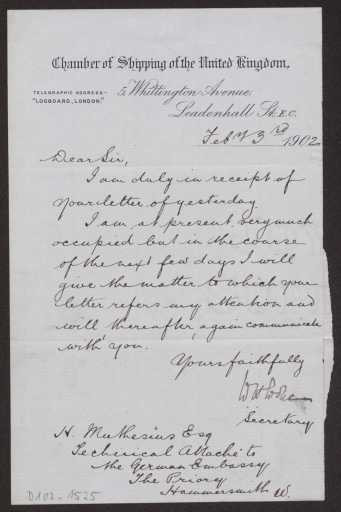 Chamber of Shipping of the United Kingdom,
TELEGRAPHIC ADDRESS—
"LOGBOARD, LONDON."
5, Whittington Avenue,
Leadenhall St. E.C.
Feby 3rd 1902
Dear Sir,
I am duly in receipt of
your letter of yesterday
I am, at present, very much
occupied but in the course
of the next few days I will
give the matter to which your
letter refers my attention and
will thereafter, again communicate
with you.
Yours faithfully
Secretary
H. Muthesius Esq
Technical Attaché to
the German Embassy
The Priory
Hammersmith W.
D102-1525